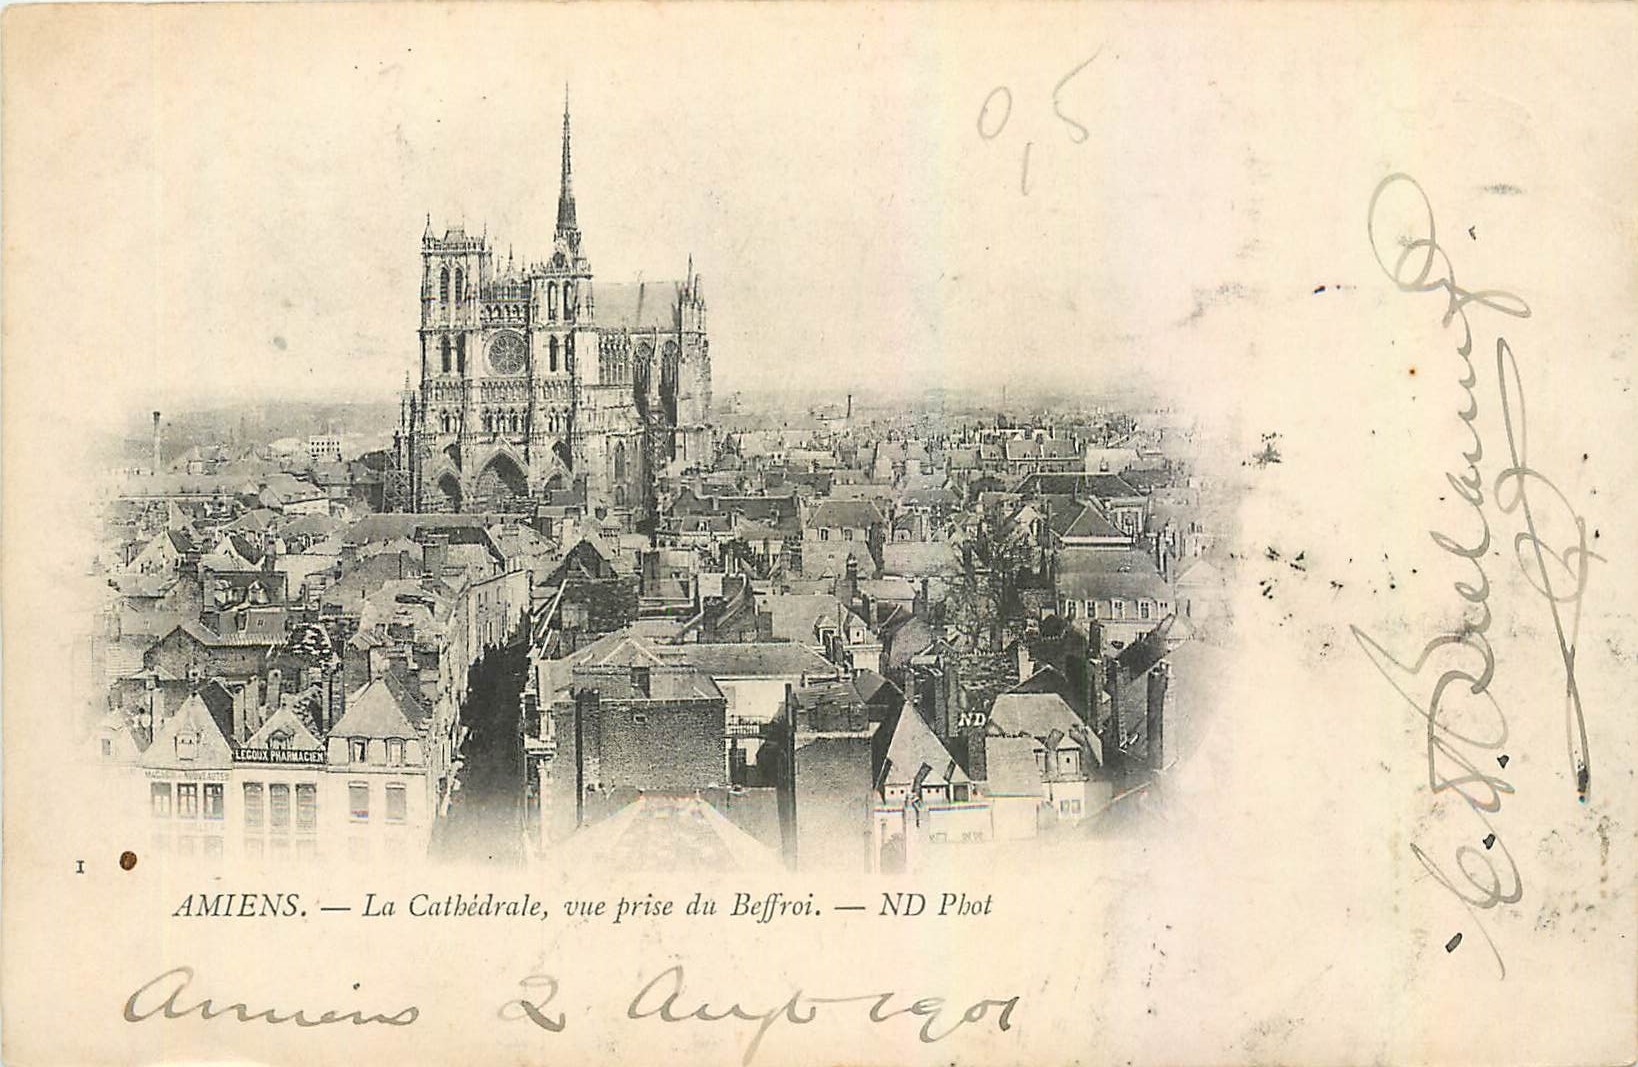 0,5
LEGOUX PHARMACIEN
MAGASIN DE NOUVEAUTES
ND
1
AMIENS. — La Cathédrale, vue prise du Beffroi. — ND Phot
Amiens 2 Aupt 1901